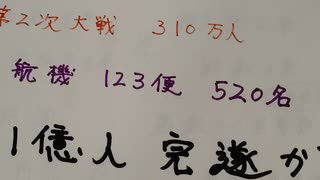 第2次大戦 310万人
航機 123便 520名
1億人 完遂か